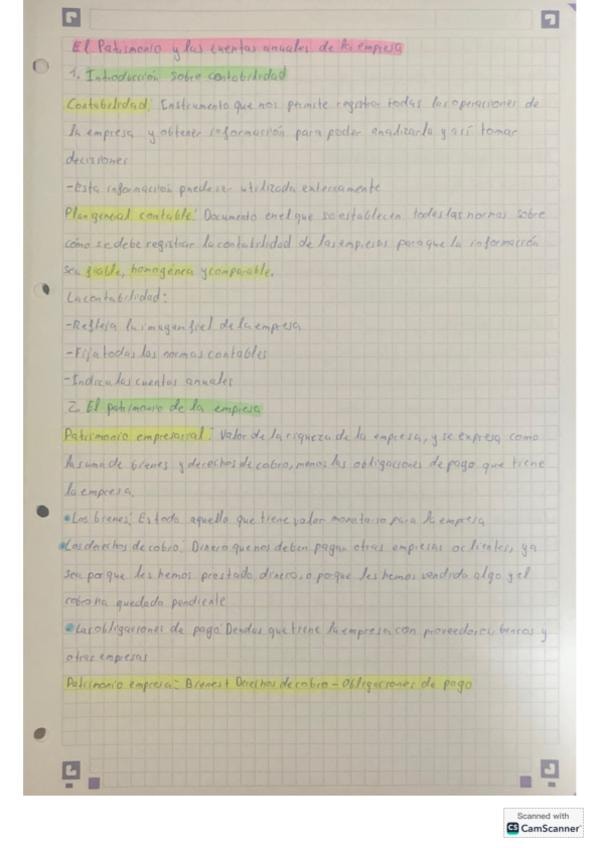 El Patrimonio y las cuentas anuales de la empresa
1. Introducción sobre contabilidad
Contabilidad: Instrumento que nos permite registrar todas las operaciones de
la empresa y obtener información para poder analizarla y así tomar
decisiones
-Esta información puede ser utilizada externamente
Plan general contable: Documento en el que se establecen todas las normas sobre
cómo se debe registrar la contabilidad de las empresas para que la información
sea fiable, homogénea y comparable.
La contabilidad:
-Refleja la imagen fiel de la empresa
-Fija todas las normas contables
-Indica las cuentas anuales
2. El patrimonio de la empresa
Patrimonio empresarial: Valor de la riqueza de la empresa, y se expresa como
la suma de bienes y derechos de cobro, menos las obligaciones de pago que tiene
la empresa.
•Los bienes: Es todo aquello que tiene valor monetario para la empresa
•Los derechos de cobro: Dinero que nos deben pagar otras empresas o clientes, ya
sea porque les hemos prestado dinero, o porque les hemos vendido algo y el
cobro ha quedado pendiente
•Las obligaciones de pago: Deudas que tiene la empresa con proveedores, bancos y
otras empresas
Patrimonio empresa = Bienes + Derechos de cobro - Obligaciones de pago
Scanned with
CS CamScanner